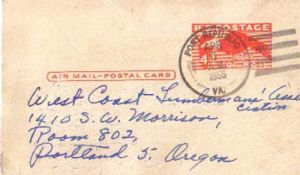 U.S. POSTAGE
4¢
APR
1955
VA.
AIR MAIL-POSTAL CARD
West Coast Lumbermans' Asso
ciation
1410 S.W. Morrison,
Room 802,
Portland 5. Oregon